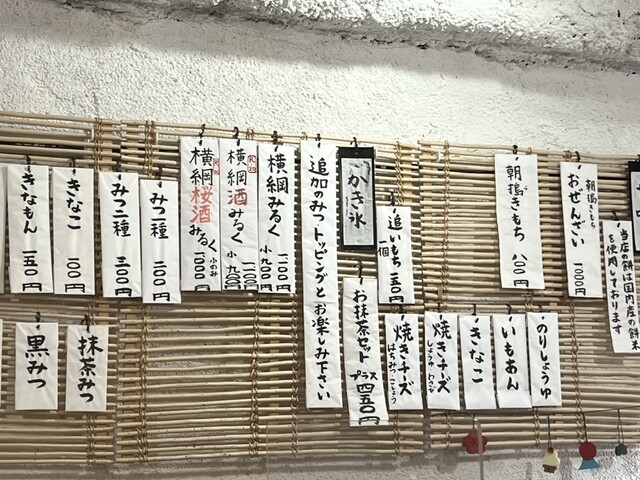 朝搗きもち
おぜんざい 一〇〇〇円
当店の餅は国内産の餅米
を使用しております
朝搗きもち 八〇〇円
追いもち 一個 一五〇円
かき氷
追加のみつトッピングとお楽しみ下さい
横綱みるく 一一〇〇 小九〇〇円
横綱酒みるく 一一〇〇 小九〇〇
横綱桜酒みるく 小のみ 一〇〇〇円
みつ一種 二〇〇円
みつ二種 三〇〇円
きなこ 一〇〇円
きなもん 一五〇円
のりしょうゆ
いもあん
きなこ
焼きチーズ
しょうゆ わさび
焼きチーズ
はちみつこしょう
お抹茶セット プラス四五〇円
抹茶みつ
黒みつ